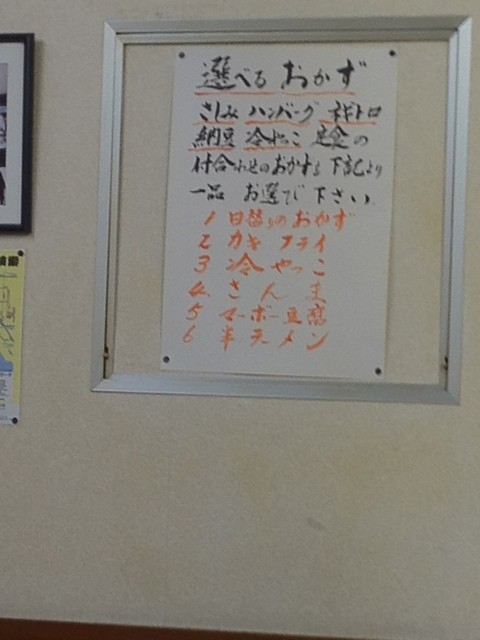 選べるおかず
さしみ ハンバーグ ネギトロ
納豆 冷やっこ 定食の
付合わせのおかずを下記より
一品 お選び下さい。
1 日替りのおかず
2 カキフライ
3 冷やっこ
4. さんま
5 マーボー豆腐
6 半ラーメン